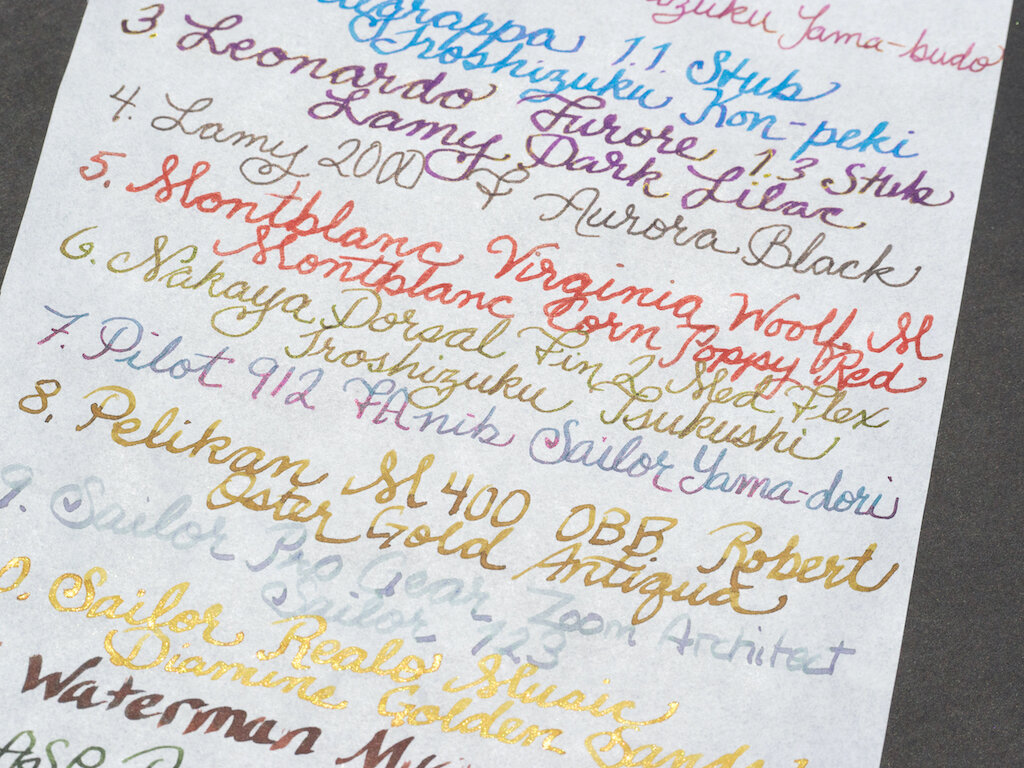 Yama-budo
1.1 Stub
Iroshizuku Kon-peki
3. Leonardo Furore 1.3 Stub
Lamy Dark Lilac
4. Lamy 2000 & Aurora Black
5. Montblanc Virginia Woolf, M
Montblanc Corn Poppy Red
6. Nakaya Dorsal Fin 2 Med Flex
Iroshizuku Tsukushi
7. Pilot 912 FA nib Sailor Yama-dori
8. Pelikan M400 OBB Robert
Oster Gold Antiqua
9. Sailor Pro Gear Zoom Architect
Sailor 123
0. Sailor Realo Music
Diamine Golden Sands
Waterman